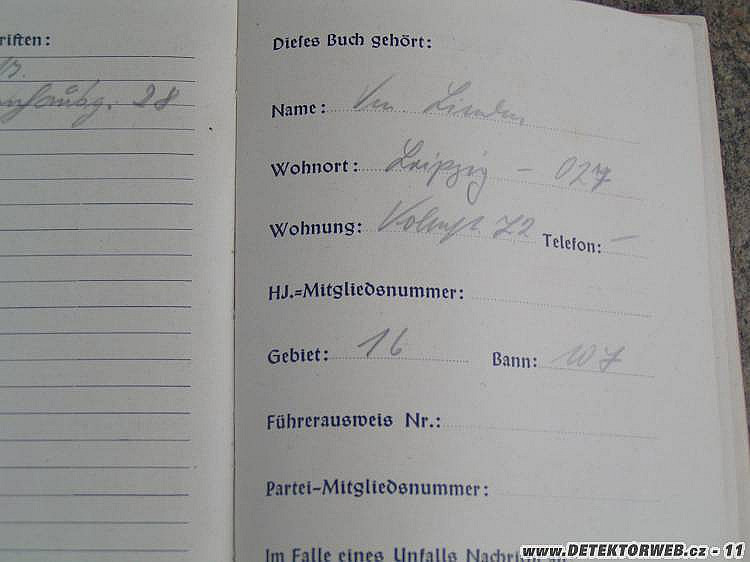 riften:
28
Dieses Buch gehört:
Name:
Wohnort: Leipzig - O27
Wohnung: 72 Telefon: -
HJ.=Mitgliedsnummer:
Gebiet: 16 Bann: 107
Führerausweis Nr.:
Partei-Mitgliedsnummer:
Im Falle eines Unfalls Nachricht an
www.DETEKTORWEB.cz - 11